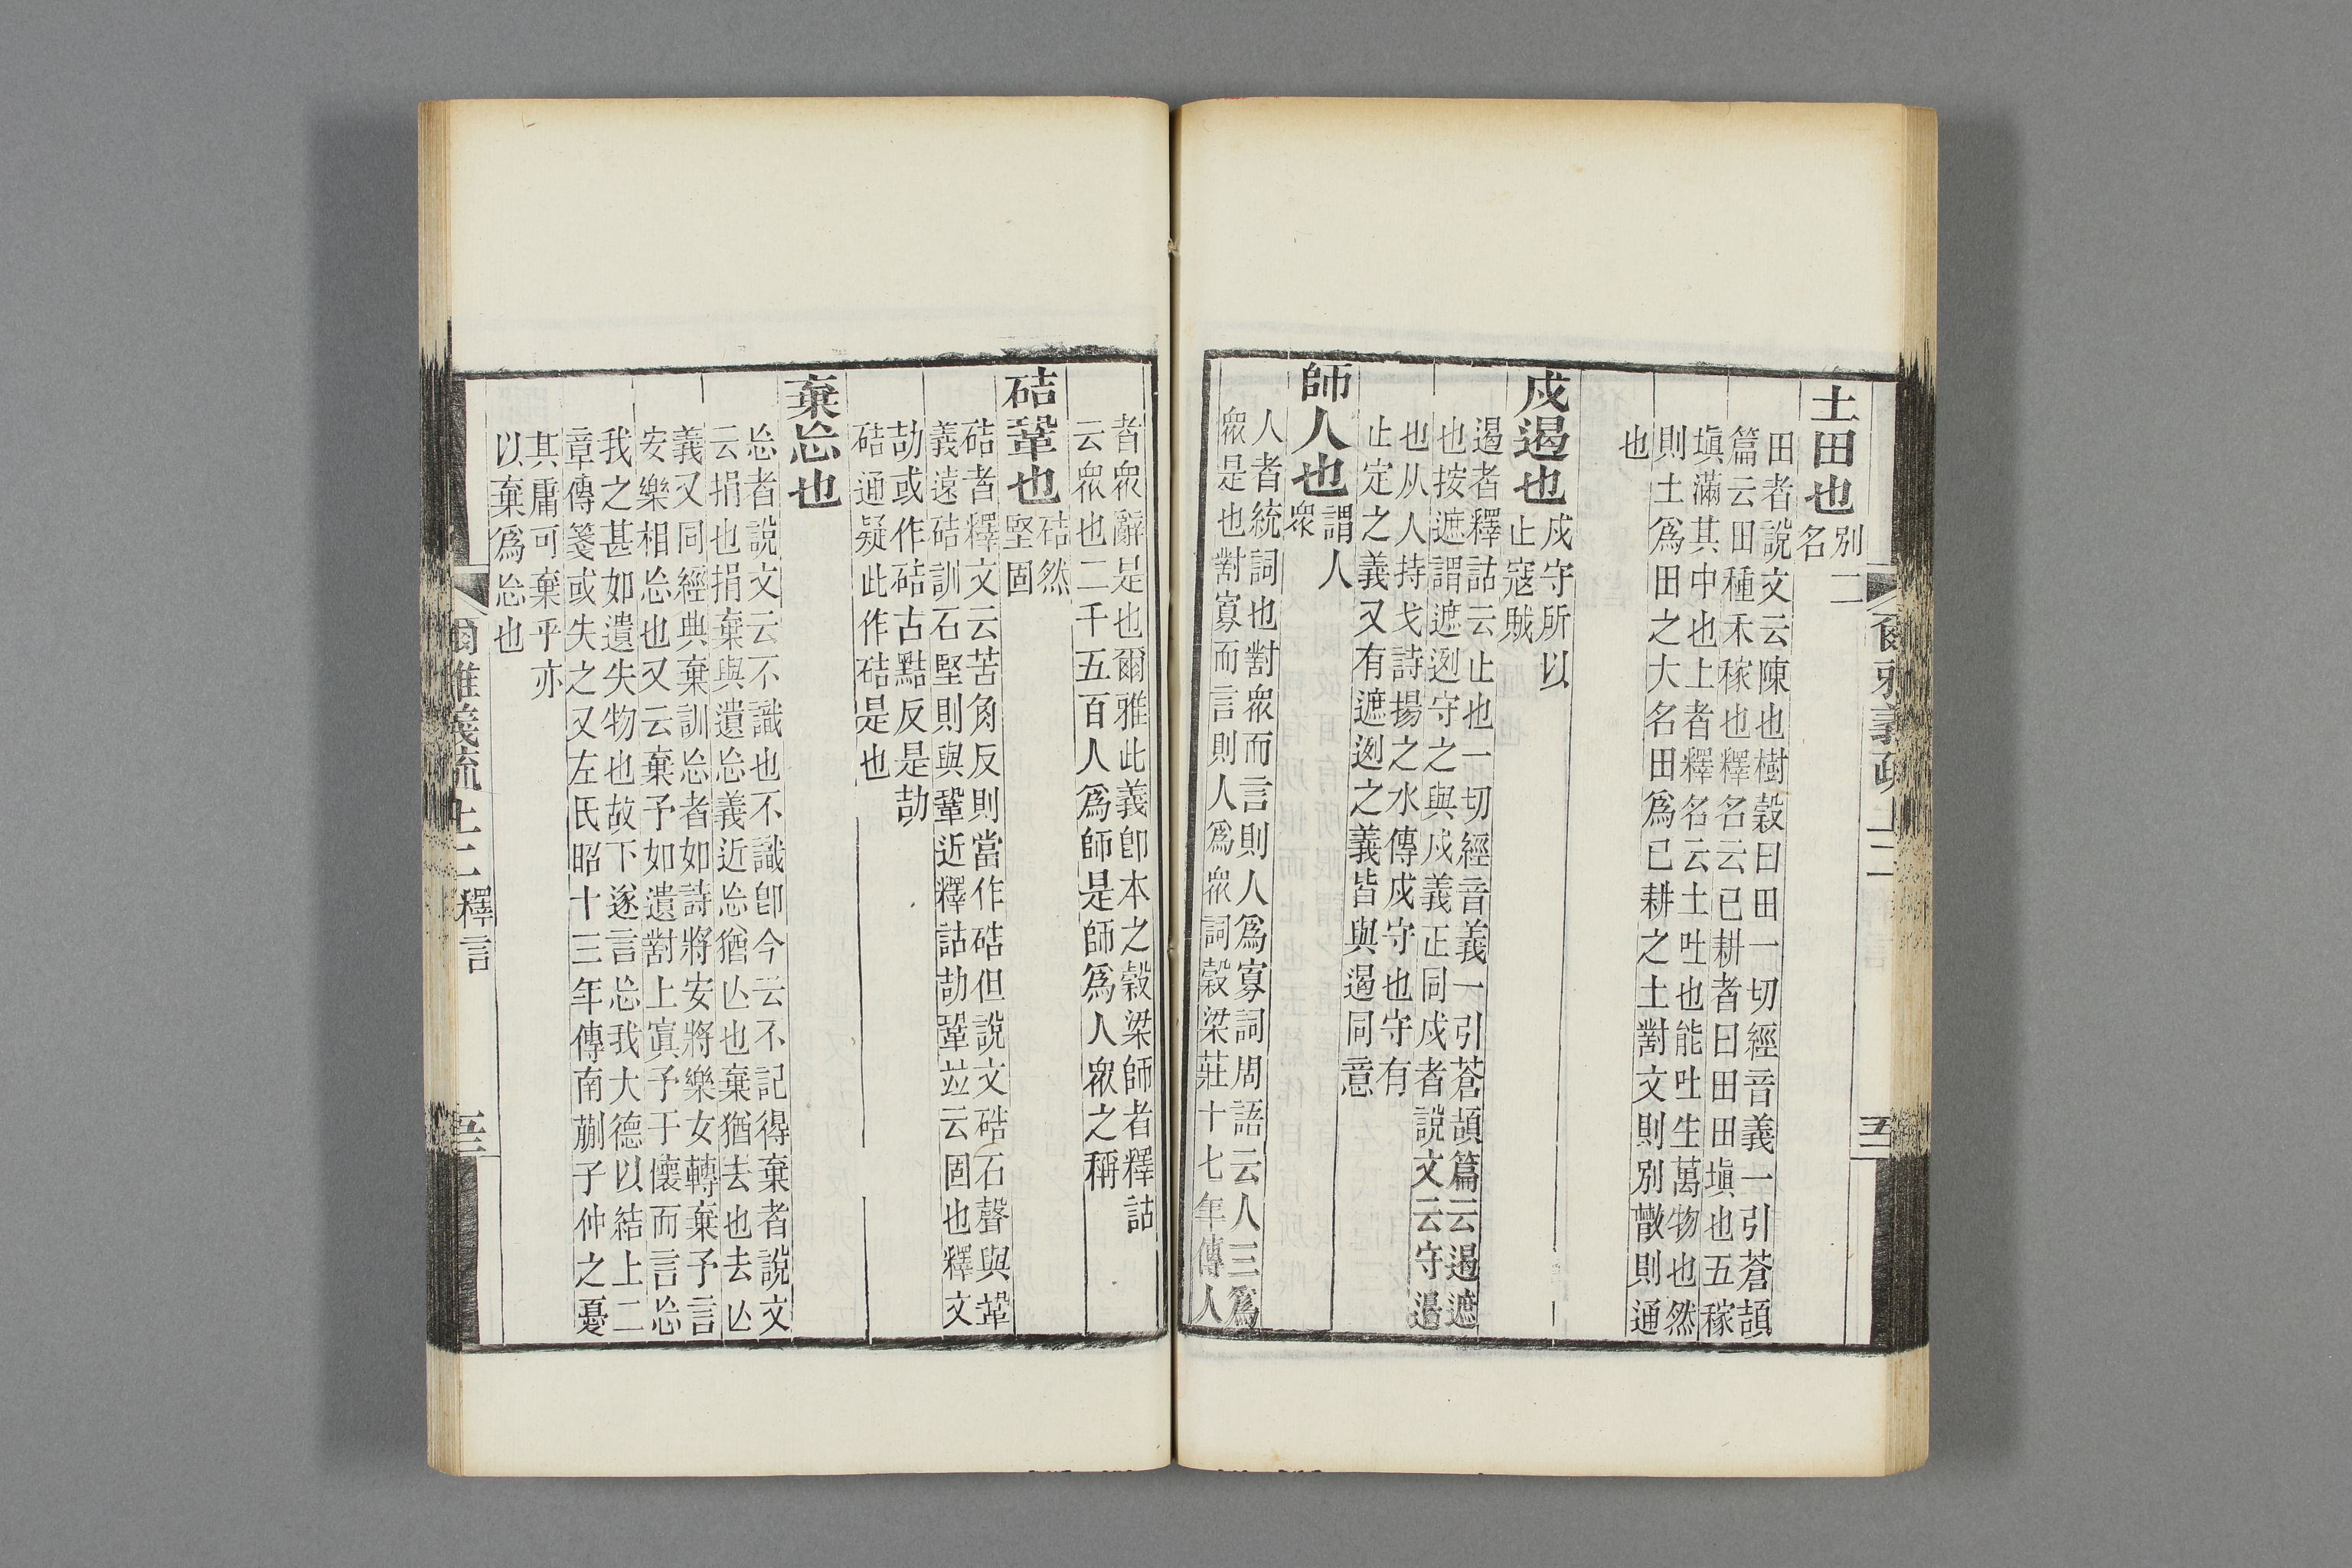 爾雅義疏上二
五二
土田也別二
名
田者說文云陳也樹穀曰田一切經音義一引蒼頡
篇云田種禾稼也釋名云已耕者曰田田塡也五稼
塡滿其中也上者釋名云土吐也能吐生萬物也然
則土爲田之大名田爲已耕之土對文則別散則通
也
戍遏也戍守所以
止寇賊
遏者釋詁云止也一切經音義一引蒼頡篇云遏遮
也按遮謂遮迾守之與戍義正同戍者說文云守邊
也从人持戈詩揚之水傳戍守也守有
止定之義又有遮迾之義皆與遏同意
師人也謂人
衆
人者統詞也對衆而言則人爲寡詞周語云人三爲
衆是也對寡而言則人爲衆詞穀梁莊十七年傳人
者衆辭是也爾雅此義卽本之穀梁師者釋詁
云衆也二千五百人爲師是師爲人衆之稱
硈鞏也硈然
堅固
硈者釋文云苦角反則當作硞但說文硞石聲與鞏
義遠硈訓石堅則與鞏近釋詁劼鞏竝云固也釋文
劼或作硈古黠反是劼
硈通疑此作硈是也
棄忘也
忘者說文云不識也不識卽今云不記得棄者說文
云捐也捐棄與遺忘義近忘猶亾也棄猶去也去亾
義又同經典棄訓忘者如詩將安將樂女轉棄予言
安樂相忘也又云棄予如遺對上寘予于懷而言忘
我之甚如遺失物也故下遂言忘我大德以結上二
章傳箋或失之又左氏昭十三年傳南蒯子仲之憂
其庸可棄乎亦
以棄爲忘也
爾雅義疏上二釋言
五三